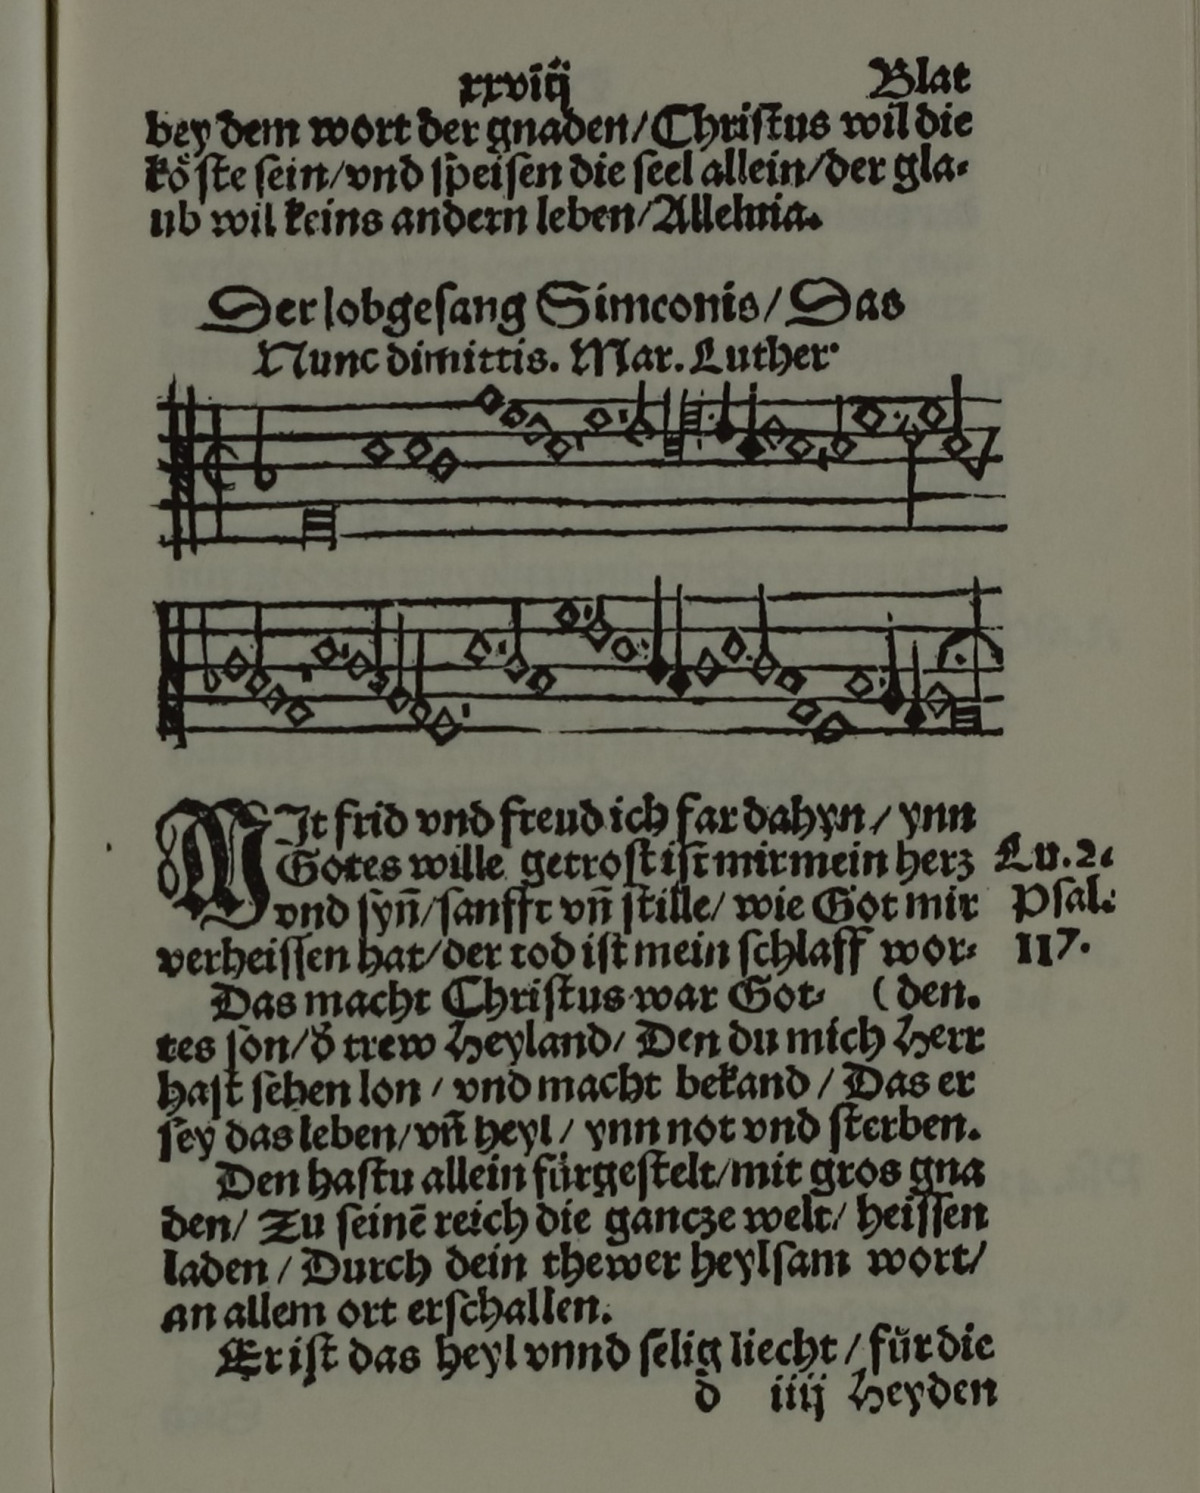 xxviij Blat
bey dem wort der gnaden/Chriſtus wil die
koͤſte ſein/vnd ſpeiſen die ſeel allein/der gla⸗
ub wil keins andern leben/Alleluia.
Der lobgeſang Simeonis/ Das
Nunc dimittis. Mar. Luther
MIt frid vnd freud ich far dahyn/ ynn
Gotes wille getroſt iſt mir mein herz Lu. 2.
vnd ſyn̄/ſanfft vn̄ ſtille/ wie Got mir Pſal.
verheiſſen hat/der tod iſt mein ſchlaff wor⸗ 117.
Das macht Chriſtus war Got⸗ (den.
tes ſon/d̕ trew Heyland/ Den du mich Herr
haſt ſehen lon/ vnd macht bekand/ Das er
ſey das leben/vn̄ heyl/ ynn not vnd ſterben.
Den haſtu allein fürgeſtelt/mit gros gna
den/ Zu ſeinē reich die gancze welt/ heiſſen
laden/ Durch dein thewer heylſam wort/
an allem ort erſchallen.
Er iſt das heyl vnnd ſelig liecht/ für die
d iiij Heyden